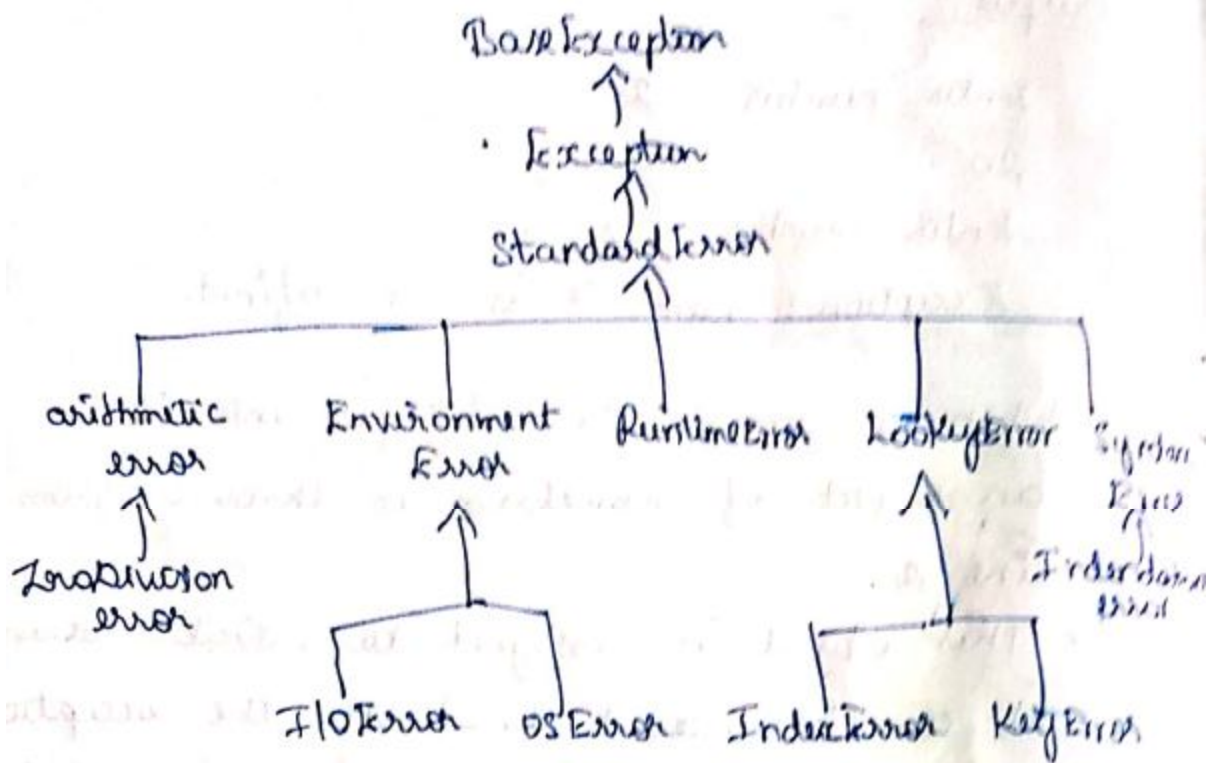 BaseException
Exception
StandardError
arithmetic error
Environment Error
RuntimeError
LookupError
Syntax Error
ZeroDivision error
Indentation error
I/OError
OSError
IndexError
KeyError